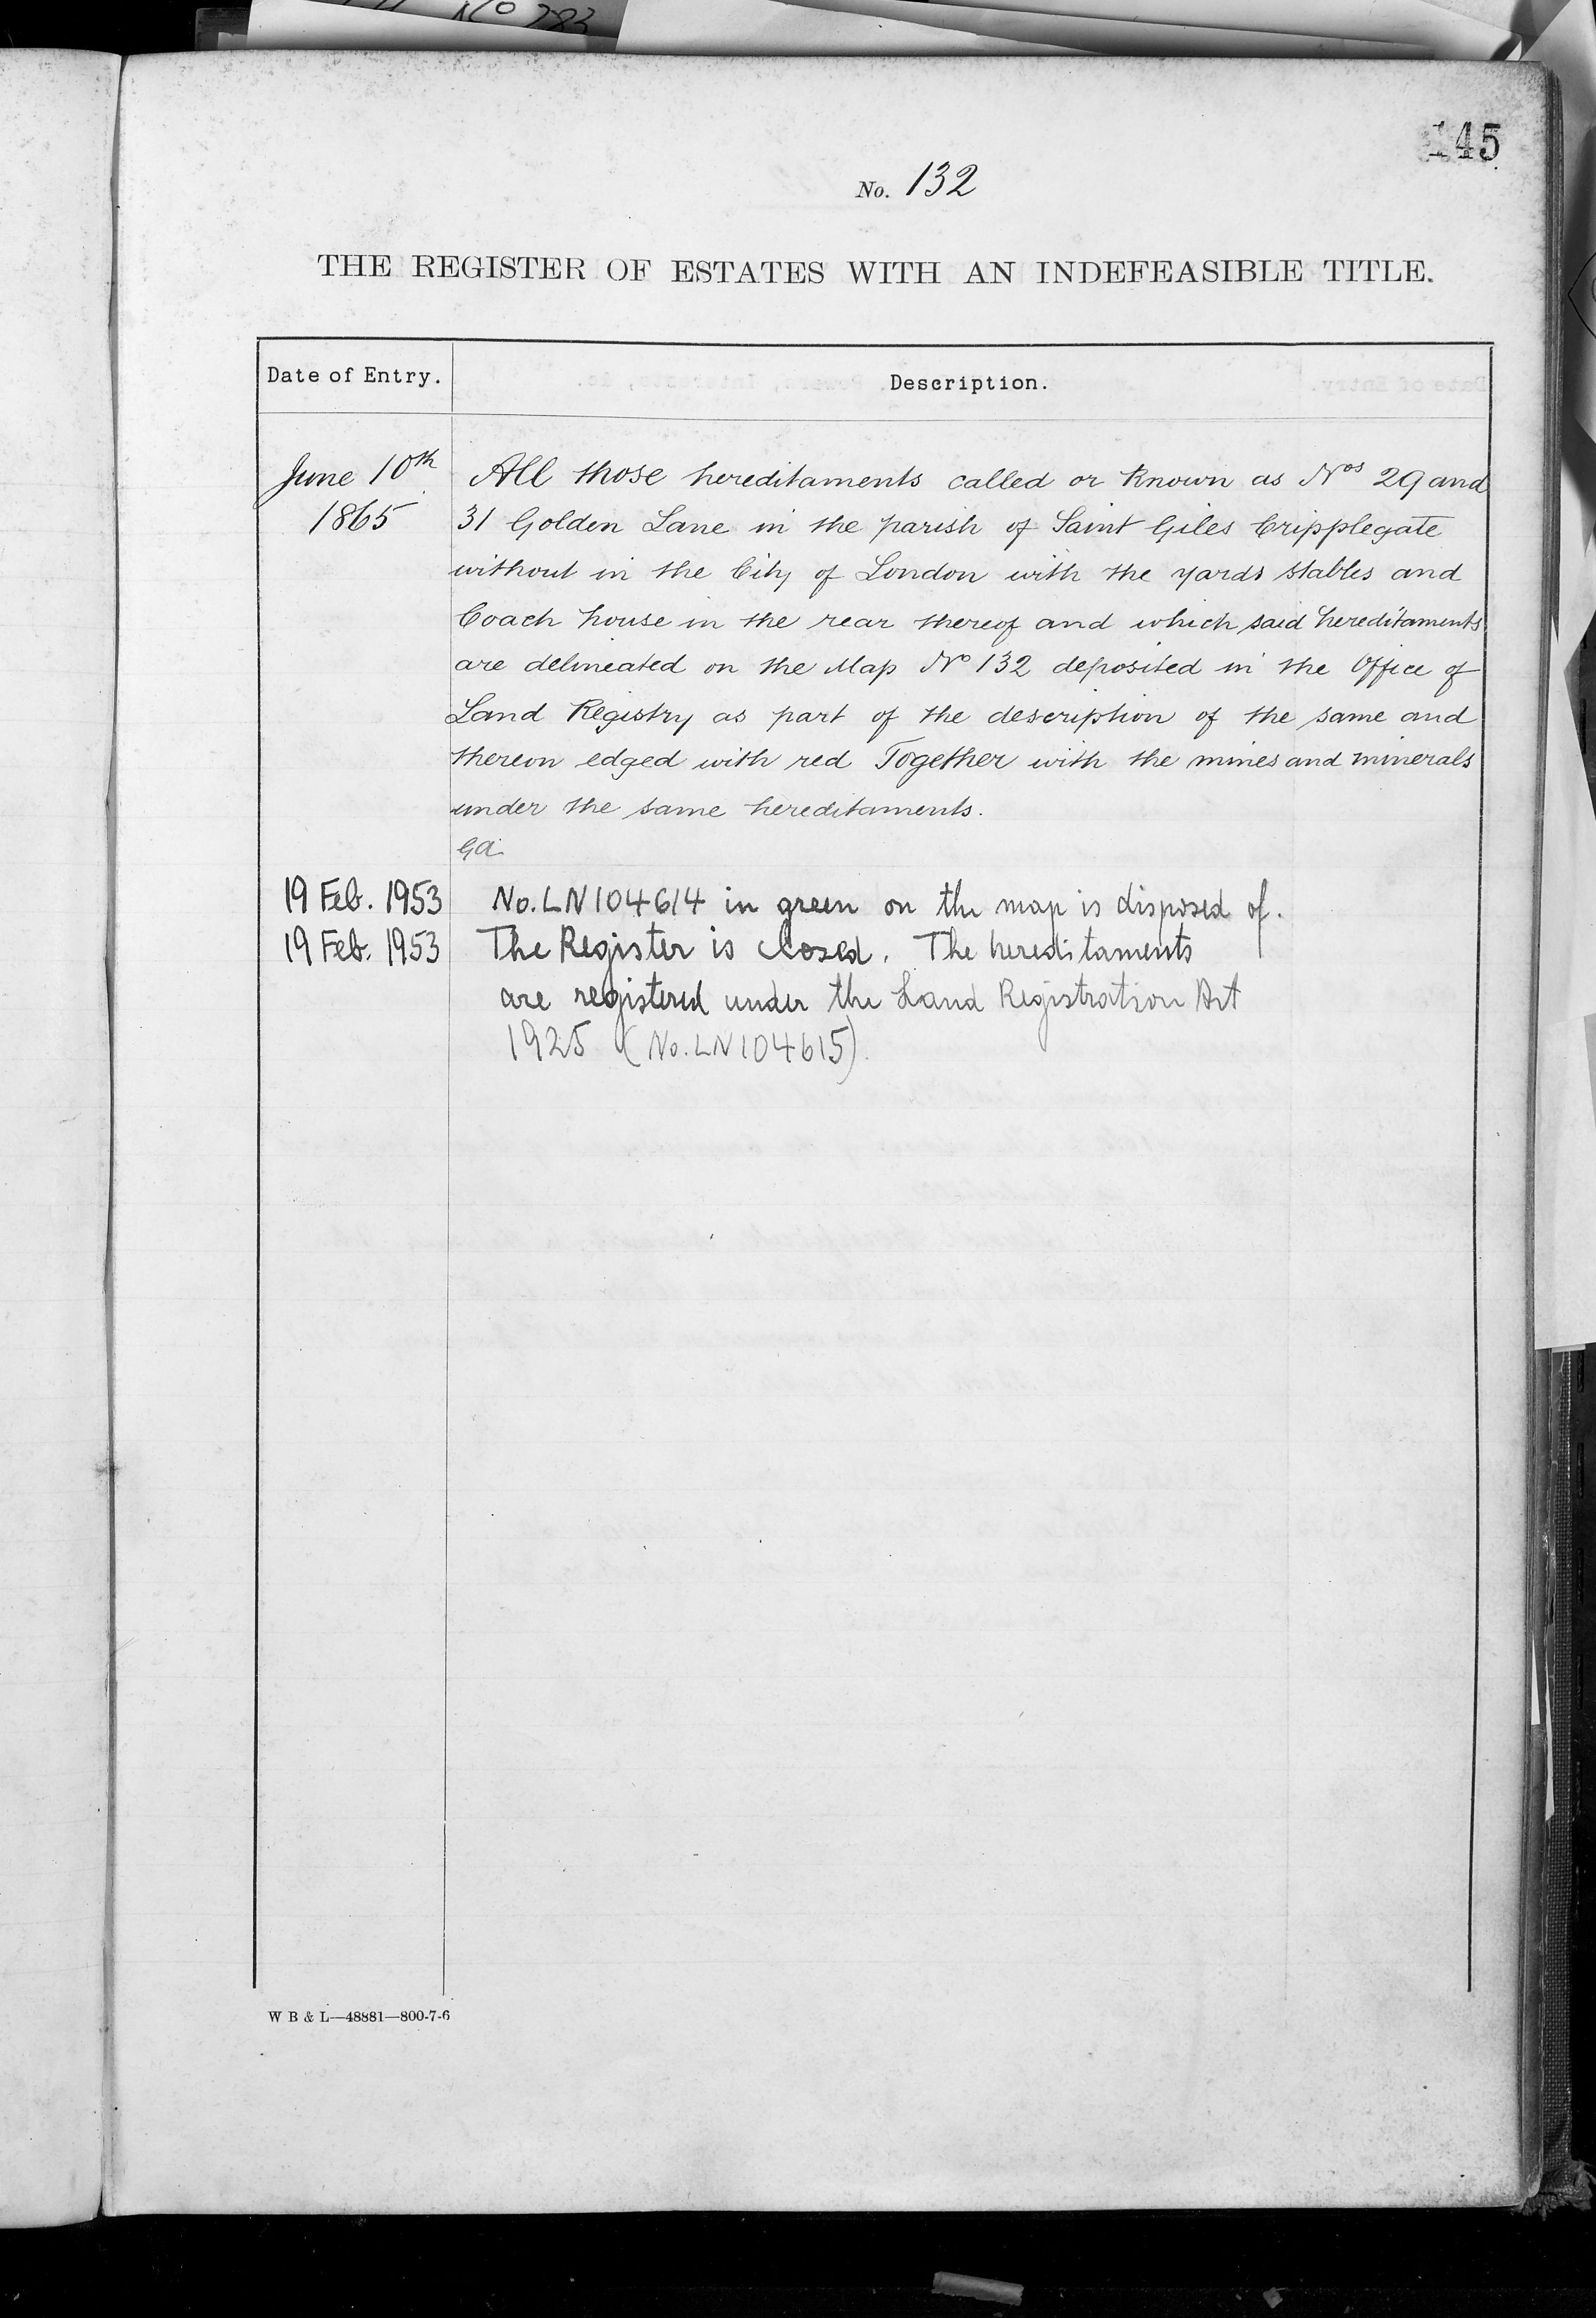 145
No. 132
THE REGISTER OF ESTATES WITH AN INDEFEASIBLE TITLE.
Date of Entry.
Description.
June 10th
1865
All those hereditaments called or known as Nos 29 and
31 Golden Lane in the parish of Saint Giles Cripplegate
without in the City of London with the yards stables and
Coach house in the rear thereof and which said hereditaments
are delineated on the Map No 132 deposited in the Office of
Land Registry as part of the description of the same and
thereon edged with red Together with the mines and minerals
under the same hereditaments.
GA
19 Feb. 1953 No. LN104614 in green on the map is disposed of.
19 Feb. 1953 The Register is closed. The hereditaments
are registered under the Land Registration Act
1925 (No. LN104615).
W B & L—48881—800-7-6